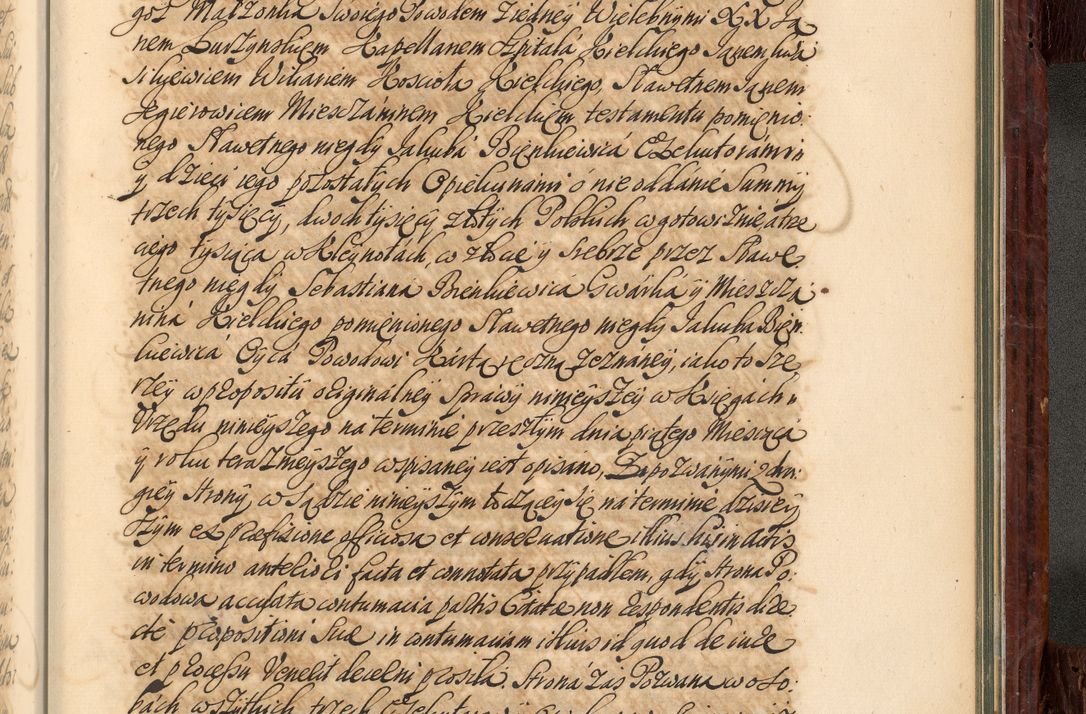 goż Małżonka Swoiego Powodem z iedney Wielebnymi XX Ja
nem Kapellanem Szpitala Kielckiego Janem
Wikariem Koscioła Kielckiego, Sławetnem Janem
Jegierowicem Mieszczaninem Kielckiem testamentu pomienio:
nego Sławetnego niegdy Jakuba Bienkiewica Exekutorámi
y dzieci iego pozostałych Opiekunami o nie oddanie Summy
trzech tysięcy, dwoch tysięcy złotych Polskich w gotowiznie, a trze
ciego tysiąca w Kleynotach, w złocie y srebrze przez Sławe
tnego niegdy Sebastiana Bienkiewica Gwarka y Mieszcza
nina Kielckiego pomienionego Sławetnego niegdy Jakuba Bien:
kiewica Oyca Powodowi Kartą ręczną zeznaney, iako to sze
rzey w propositij originalney sprawy ninieyszey w Xięgach
Vrzędu ninieyszego na terminie przeszłym dnia piątego Miesiąca
y roku teraznieyszego wspisaney iest opisano, Zapozwanymi z dru:
giey strony, w Sądzie ninieyszym toczącey się na terminie dzisiey
szym ex praefixione officiosa et conservatione illius hic in actis
in termino anteriori facta et connotata przypadłem, gdy strona Po:
wodowa accusata contumacia partis Citatae non respondentis dictae
propositioni suae in contumaciam illius id quod de iure
et processu venerit decerni prosiła. Strona zas Pozwana w oso:
bach wszytkich trzech